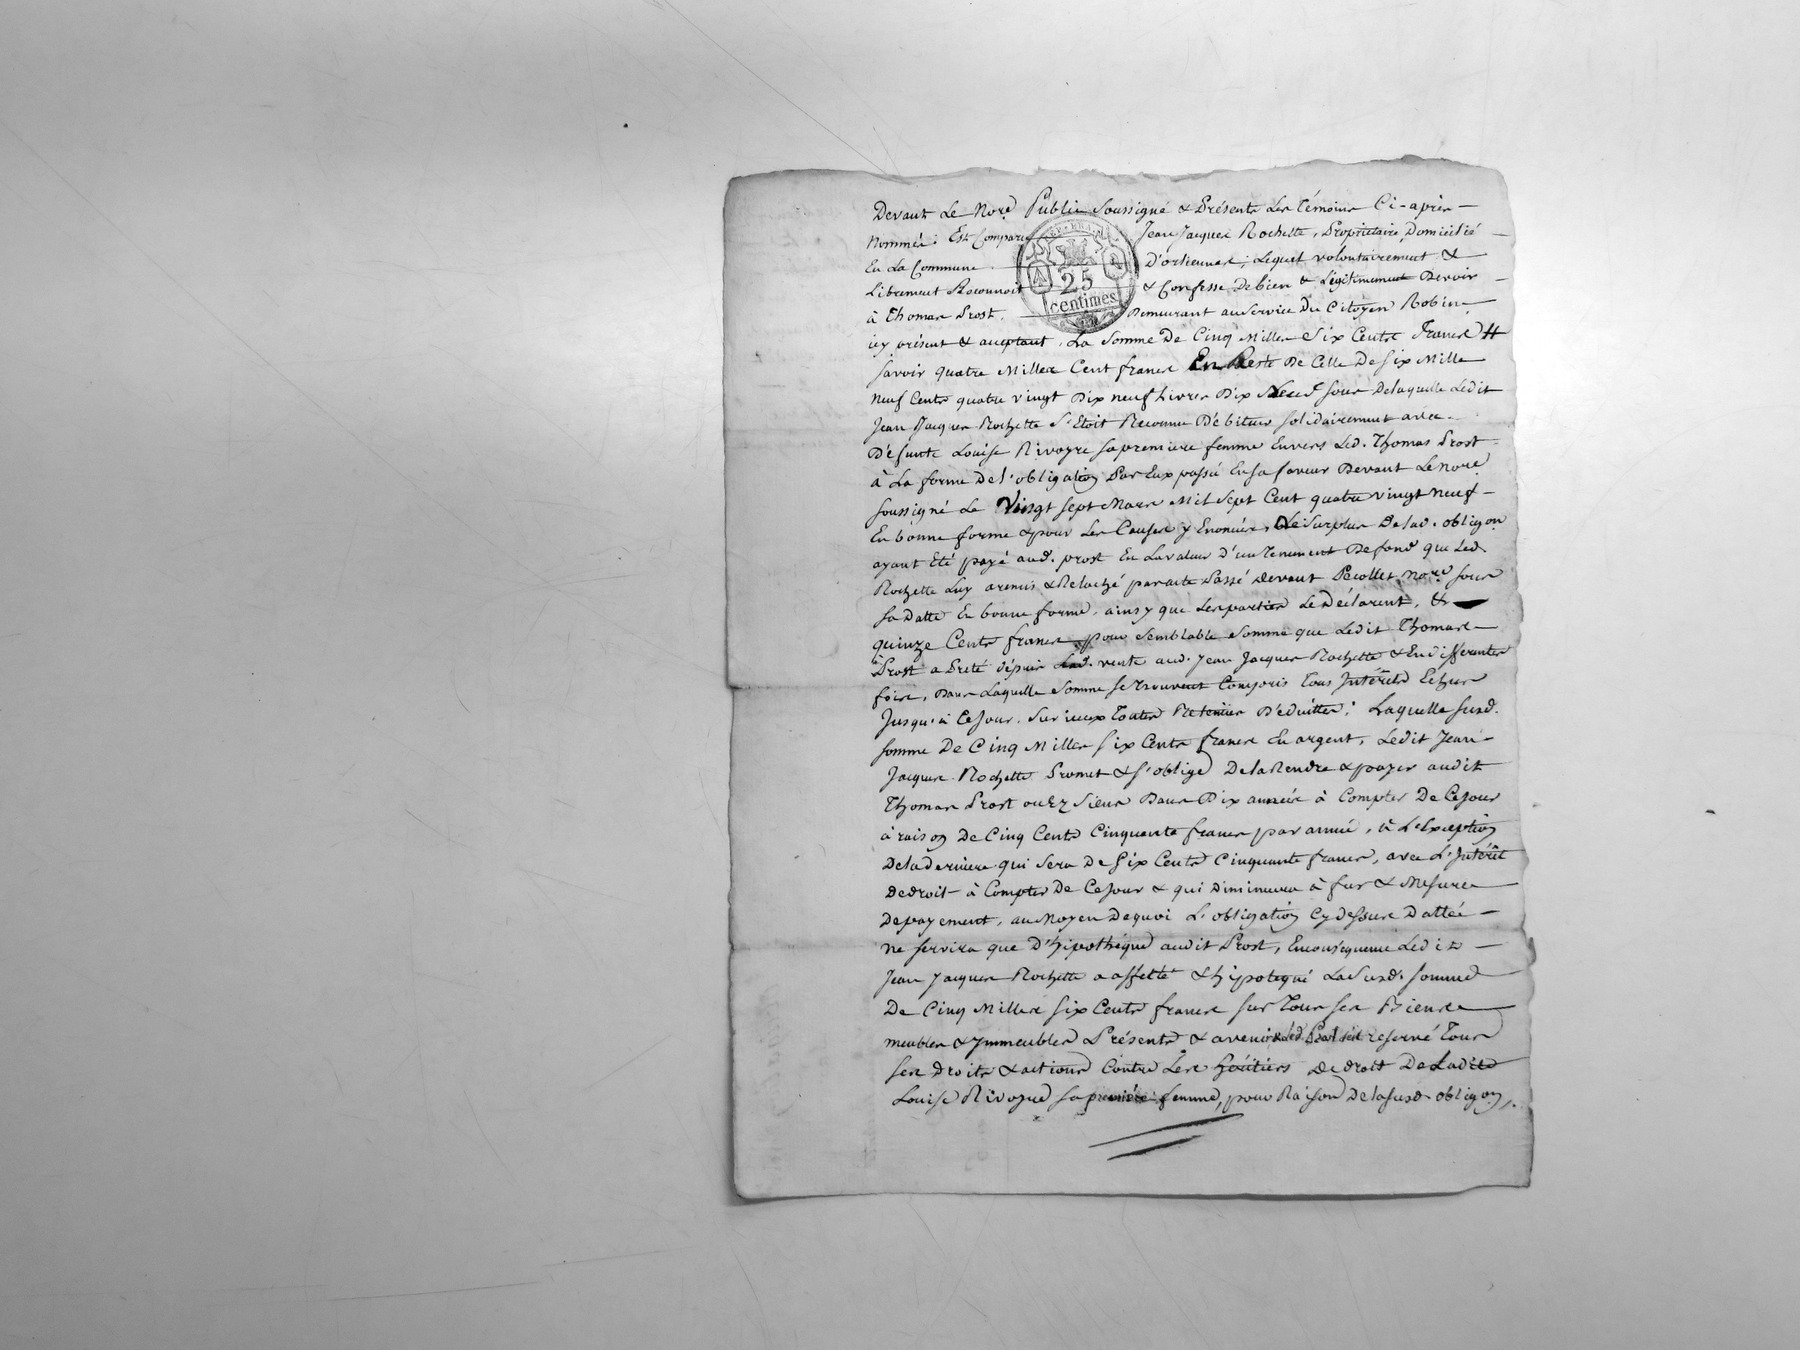 Devant Le Nore Public Soussigné & Présents Les Témoins Ci-après
Nommés: Est Comparu Jean Jacques Rochette, Propriétaire Domicilié
En La Commune D'orlienas, Lequel volontairement &
Librement Reconnoit & Confesse De bien & Légitimement Devoir
à Thomas Prost. Demeurant au Service Du Citoyen Robin
25
centimes
icy présent & acceptant, La Somme De Cinq Milles Six Cents Francs
Savoir quatre Milles Cent francs En Reste De Celle De Six Mille
Neuf Cents quatre vingt Dix neuf Livres Dix Neuf sous Delaquelle Ledit
Jean Jacques Rochette S'Etoit Reconnu Débiteur solidairement avec
Défunte Louise Rivoyre sa premiere femme Envers Led. Thomas Prost
à La forme Del'obligation Par Eux passé En sa faveur Devant Le nore
soussigné Le Vingt Sept Mars Mil Sept Cent quatre vingt neuf
En bonne forme & pour Les Causes y Enoncées, Le Surplus Delad. obligon
ayant Eté payé aud. prost En La valeur D'un Tenement De fond que Led.
Rochette Luy a remis & Relaché par acte Passé Devant Pecollet nore sous
sa Datte En bonne forme, ainsy que Les parties Le Déclarent, &
quinze Cents francs pour Semblable Somme que Ledit Thomas
Prost a Preté dépuis Lad. vente aud. Jean Jacques Rochette & En differentes
fois, Dans Laquelle Somme se Trouvent Compris Tous Intérêts Echus
Jusqu'à Ce Jour, Sur iceux Toutes Retenues Déduittes; Laquelle susd.
somme De Cinq Milles six Cents francs En argent, Ledit Jean
Jacques Rochette Promet & s'oblige De la Rendre & payer audit
Thomas Prost ou Ez Siens Dans Dix années à Compter De Ce Jour
à raison De Cinq Cents Cinquante francs par année, à L'Exception
Dela derniere qui Sera De Six Cents Cinquante francs, avec L'Intérêt
De droit à Compter De Ce Jour & qui Diminuera à fur & Mesure
De payement, au Moyen De quoi L'obligation Cy Dessus Dattée
ne servira que D'hipothéque audit Prost, En conséquence Ledit
Jean Jacques Rochette a affetté & hipotequé La Susd. somme
De Cinq Milles Six Cents francs sur Tous ses Biens
meubles & Immeubles Présents & avenir & Led. Prost s'est reservé Tous
ses Droits & actions Contre Les héritiers De droit De Ladite
Louise Rivoyre sa première femme, pour Raison De la susd. obligon.